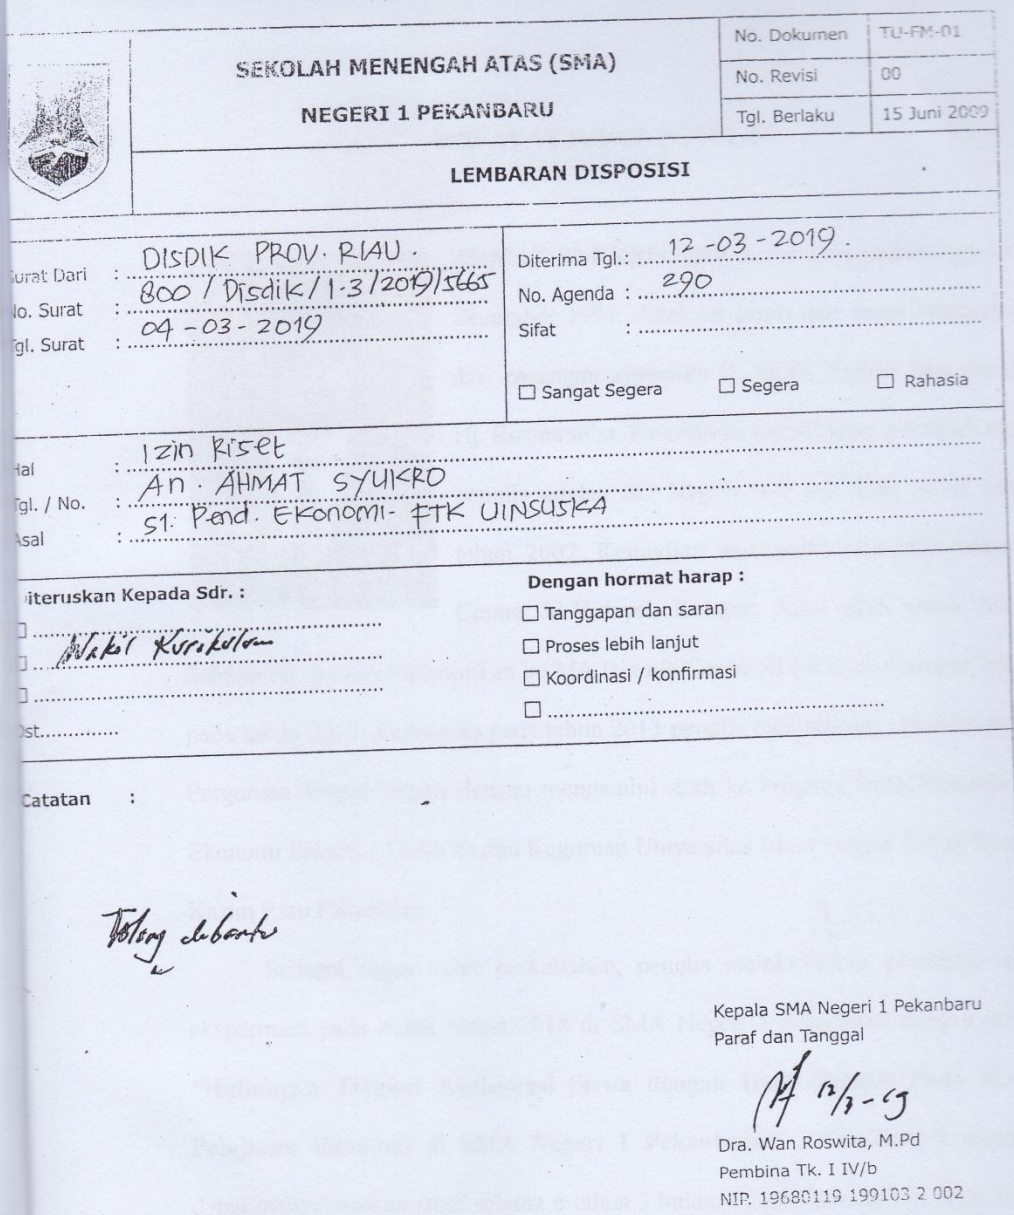 SEKOLAH MENENGAH ATAS (SMA)
NEGERI 1 PEKANBARU
No. Dokumen TU-FM-01
No. Revisi 00
Tgl. Berlaku 15 Juni 2009
LEMBARAN DISPOSISI
Surat Dari : DISDIK PROV. RIAU
No. Surat : 800 / Disdik / 1.3 / 2019 / 5665
Tgl. Surat : 04 - 03 - 2019
Diterima Tgl. : 12 - 03 - 2019
No. Agenda : 290
Sifat :
☐ Sangat Segera ☐ Segera ☐ Rahasia
Hal : Izin Riset
Tgl. / No. : An AHMAT SYUKRO
Asal : S1. Pend. Ekonomi - FTK UINSUSKA
Diteruskan Kepada Sdr. :
☐
☐ Wakil Kurikulum
☐
Dst.............
Dengan hormat harap :
☐ Tanggapan dan saran
☐ Proses lebih lanjut
☐ Koordinasi / konfirmasi
☐
Catatan :
Tolong dibantu
Kepala SMA Negeri 1 Pekanbaru
Paraf dan Tanggal
12/3-19
Dra. Wan Roswita, M.Pd
Pembina Tk. I IV/b
NIP. 19680119 199103 2 002